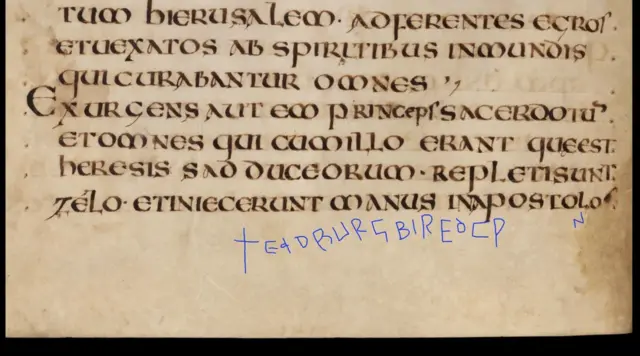 TUM HIERUSALEM · ADFERENTES EGROS
ETUEXATOS AB SPIRITIBUS INMUNDIS
QUI CURABANTUR OMNES
EXURGENS AUTEM PRINCEPS SACERDOTU
ET OMNES QUI CUM ILLO ERANT QUE EST
HERESIS SADDUCEORUM · REPLETI SUNT
ZELO · ET INIECERUNT MANUS IN APOSTOLOS
N
+EADBURG BIREÐ CP